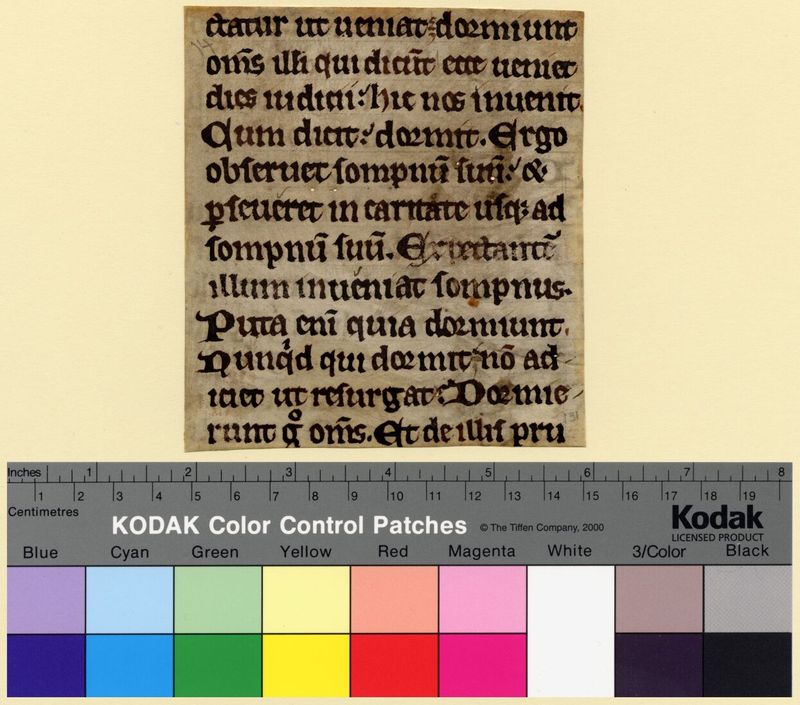 ctatur ut ueniat dormiunt
om̄s illi qui dicūt ecce ueniet
dies iudicii: hic nos inuenit
Cum dicit: dormit. Ergo
obseruet sompnū suū: &
ꝑseueret in caritate usq; ad
sompnū suū. Expectantē
illum inueniat sompnus.
Puta eni̅ quia dormiunt.
Nunqͥd qui dormit nō ad
iciet ut resurgat: Dormie
runt gͦ om̄s. Et de illis pru
Inches 1 2 3 4 5 6 7 8
1 2 3 4 5 6 7 8 9 10 11 12 13 14 15 16 17 18 19
Centimetres
KODAK Color Control Patches © The Tiffen Company, 2000 Kodak
LICENSED PRODUCT
Blue Cyan Green Yellow Red Magenta White 3/Color Black